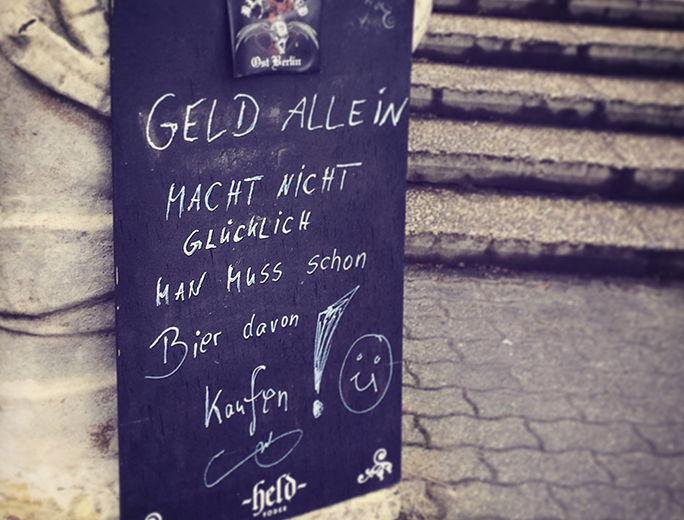 Ost Berlin
GELD ALLEIN
MACHT NICHT
GLÜCKLICH
MAN MUSS schon
Bier davon
Kaufen !
-held-
VODKA